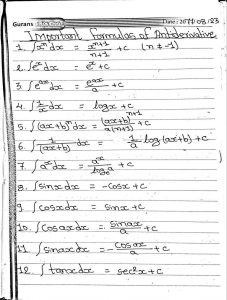 Gurans
Date: 2079/03/23
Important formulas of Antiderivative
1. ∫xⁿdx = xⁿ⁺¹/n+1 + c (n ≠ -1)
2. ∫eˣdx = eˣ + c
3. ∫eᵃˣdx = eᵃˣ/a + c
4. ∫1/x dx = logx + c
5. ∫(ax+b)ⁿdx = (ax+b)ⁿ⁺¹/a(n+1) + c
6. ∫1/(ax+b) dx = 1/a log(ax+b) + c
7. ∫aˣdx = aˣ/logₑa + c
8. ∫sinxdx = -cosx + c
9. ∫cosxdx = sinx + c
10. ∫cosaxdx = sinax/a + c
11. ∫sinaxdx = -cosax/a + c
12. ∫tanxdx = sec²x + c